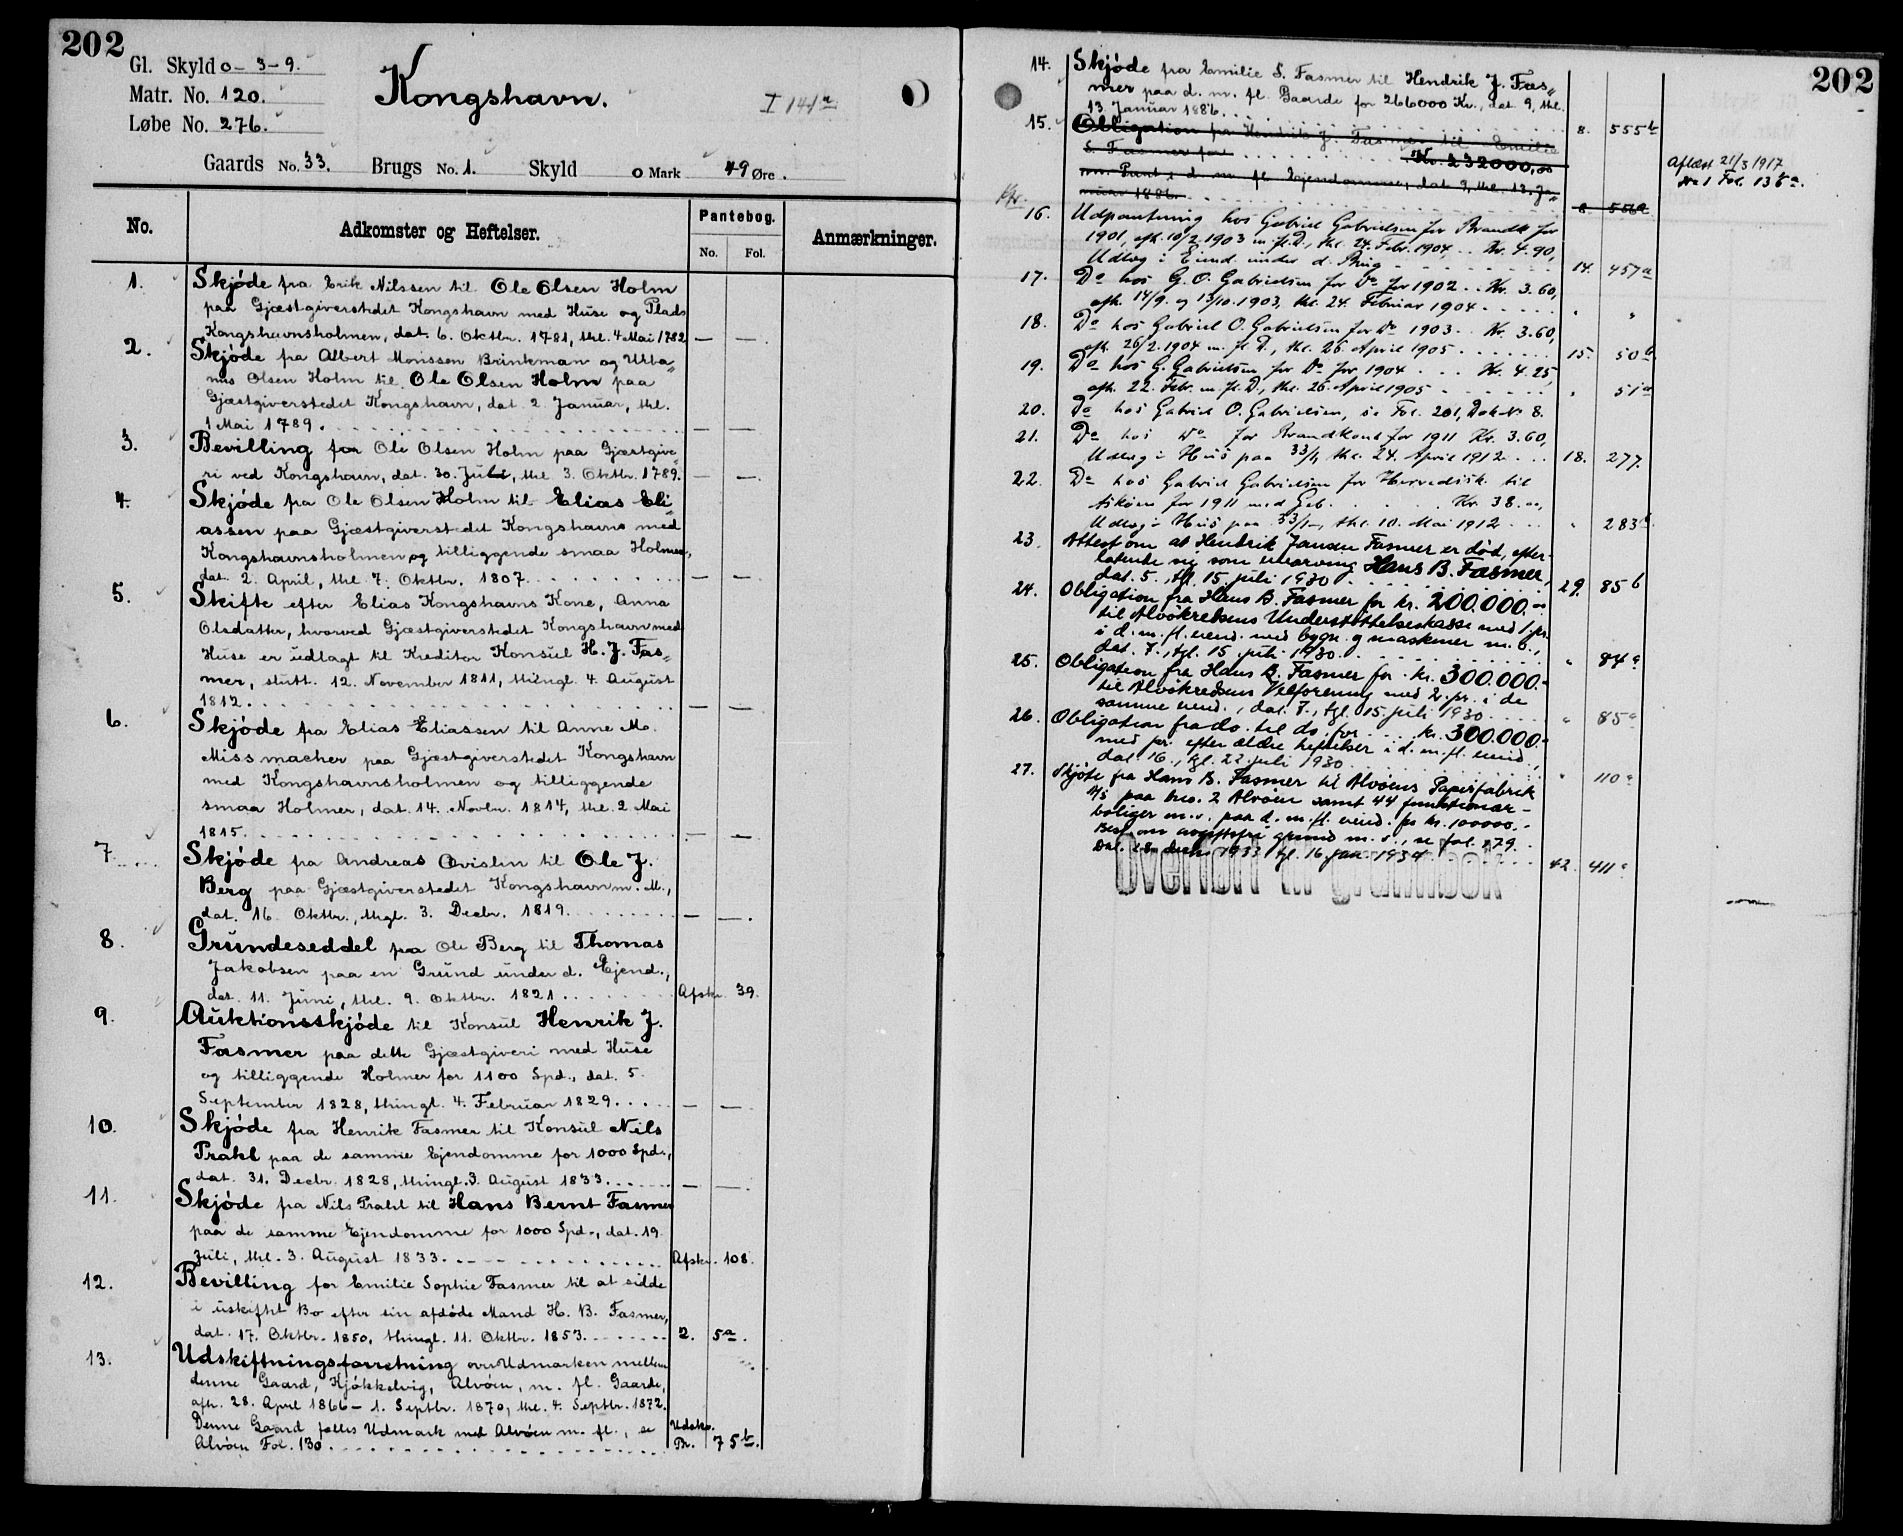 202
Gl. Skyld 0-3-9.
Matr. No. 120.
Løbe No. 276.
Kongshavn.
I 141a
Gaards No. 33. Brugs No. 1. Skyld 0 Mark 49 Øre.
No. Adkomster og Heftelser. Pantebog. Anmærkninger.
No. Fol.
1. Skjøde fra Erik Nilssen til Ole Olsen Holm
paa Gjæstgiverstedet Kongshavn med Huse og Plads
Kongshavnsholmen, dat. 6. Oktbr. 1781, thl. 4 Mai 1782 — —.
2. Skjøde fra Albert Monssen Brinkman og Urba„
nus Olsen Holm til Ole Olsen Holm paa
Gjæstgiverstedet Kongshavn, dat. 2. Januar, thl.
1 Mai 1789. — —
3. Bevilling for Ole Olsen Holm paa Gjæstgive„
ri ved Kongshavn, dat. 30. Juli, thl. 3. Oktbr. 1789. — —.
4. Skjøde fra Ole Olsen Holm til Elias Eli„
assen paa Gjæstgiverstedet Kongshavns med
Kongshavnsholmen og tilliggende smaa Holmer,
dat. 2. April, thl. 7. Oktbr. 1807. — —
5. Skifte efter Elias Kongshavns Kone, Anna
Olsdatter, hvorved Gjæstgiverstedet Kongshavn med
Huse er udlagt til Kreditor Konsul H. J. Fas„
mer, slutt. 12. November 1811, thingl. 4. August
1812. — —
6. Skjøde fra Elias Eliassen til Anne M.
Missmacher paa Gjæstgiverstedet Kongshavn
med Kongshavnsholmen og tilliggende
smaa Holmer, dat. 14. Novbr. 1814, thl. 2. Mai
1815. — —
7. Skjøde fra Andreas Qvislin til Ole J.
Berg paa Gjæstgiverstedet Kongshavn m. M.,
dat. 16. Oktbr., thgl. 3. Decbr. 1819. — —.
8. Grundeseddel fra Ole Berg til Thomas
Jakobsen paa en Grund under d. Ejend.,
dat. 11. Juni, thl. 9. Oktbr. 1821. Afskr. 39.
9. Auktionsskjøde til Konsul Henrik J.
Fasmer paa dette Gjæstgiveri med Huse
og tilliggende Holmer for 1100 Spd., dat. 5.
September 1828, thingl. 4. Februar 1829. — —.
10. Skjøde fra Henrik Fasmer til Konsul Nils
Prahl paa de samme Ejendomme for 1000 Spd.,
dat. 31. Decbr. 1828, thingl. 3. August 1833. — —.
11. Skjøde fra Nils Prahl til Hans Bernt Fasmer
paa de samme Ejendomme for 1000 Spd., dat. 19.
Juli, thl. 3. August 1833. Afskr. 108.
12. Bevilling for Emilie Sophie Fasmer til at sidde
i uskiftet Bo efter sin afdøde Mand H. B. Fasmer,
dat. 17. Oktbr. 1850, thingl. 11. Oktbr. 1853. 2. 5a.
13. Udskiftningsforretning over Udmarken mellem
denne Gaard, Kjøkkelvig, Alvøen, m. fl. Gaarde,
afh. 28. April 1866 – 1. Septbr. 1870, thl. 4. Septbr. 1872.
Denne Gaard fælles Udmark med Alvøen m. fl., se Udskr.
Alvøen Fol. 130. Pr. 75b.
202
14. Skjøde fra Emilie S. Fasmer til Hendrik J. Fas„
mer paa d. m. fl. Gaarde for 266000 Kr., dat. 9, thl.
13. Januar 1886. 8. 555b
15. Obligation fra Hendrik J. Fasmer til Emilie
S. Fasmer for Kr. 232000,00
m. Pant i d. m. fl. Ejendomme, dat. 9, thl. 13. Ja„
nuar 1886. 8 556a
Aflæst 21/3 1917
No 1 Fol. 136a.
16. Udpantning hos Gabriel Gabrielsen for Brandk for
1901, afh. 10/2 1903 m. fl. D., thl. 24. Febr. 1904, Kr. 4.90,
Udlæg i Eiend. under d. Brug 14. 457a
17. Do hos G. O. Gabrielsen for Do for 1902 Kr. 3.60,
afh. 14/9. og 13/10.1903, thl. 24. Februar 1904 " "
18. Do hos Gabriel O. Gabrielsen for Do 1903 Kr. 3.60,
afh. 26/2.1904 m. fl. D., thl. 26. April 1905 15. 50b
19. Do hos G. Gabrielsen for Do for 1904 Kr. 4.25,
afh. 22. Febr. m. fl. D., thl. 26. April 1905 " 51a
20. Do hos Gabriel O. Gabrielsen, se Fol. 201, Dok No 8.
21. Do hos Do for Brandkont for 1911 Kr. 3.60,
Udlæg i Hus paa 33/1, thl. 24. April 1912 18. 277.
22. Do hos Gabriel Gabrielsen for Herredssk til
Askøen for 1911 med Geb. Kr. 38.00,
Udlæg i Hus paa 33/1, thl. 10. Mai 1912 " 283b
23. Attest om at Hendrik Jansen Fasmer er død, efter-
latende sig som enearving Hans B. Fasmer,
dat. 5., tgl. 15. juli 1930 29. 85b
24. Obligation fra Hans B. Fasmer for kr. 200.000.00
til Alvøkredsens Understøttelseskasse med 1. pr.
i d. m. fl. eiend. med bygn. og maskiner m. v.,
dat. 7., tgl. 15. juli 1930. " 84a
25. Obligation fra Hans B. Fasmer for kr. 300.000.-
til Alvøkredsens Velforening med 2. pr. i de
samme eiend., dat. 7., tgl. 15. juli 1930 " 85a
26. Obligation fra do. til do. for kr. 300.000.-
med pr. efter ældre heftelser i d. m. fl. eiend.,
dat. 16., tgl. 22 juli 1930 " 110a
27. Skjøte fra Hans B. Fasmer til Alvøens Papirfabrik
A/S paa bno. 2 Alvøen samt 44 funktionær-
boliger m. v. paa d. m. fl. eiend. for kr. 100000.-
Best. om avgiftsfri grund m. v., se fol. 179.
Dat. 28. decbr. 1933 tgl. 16. jan. 1934 42. 411a
Overført til grunnbok